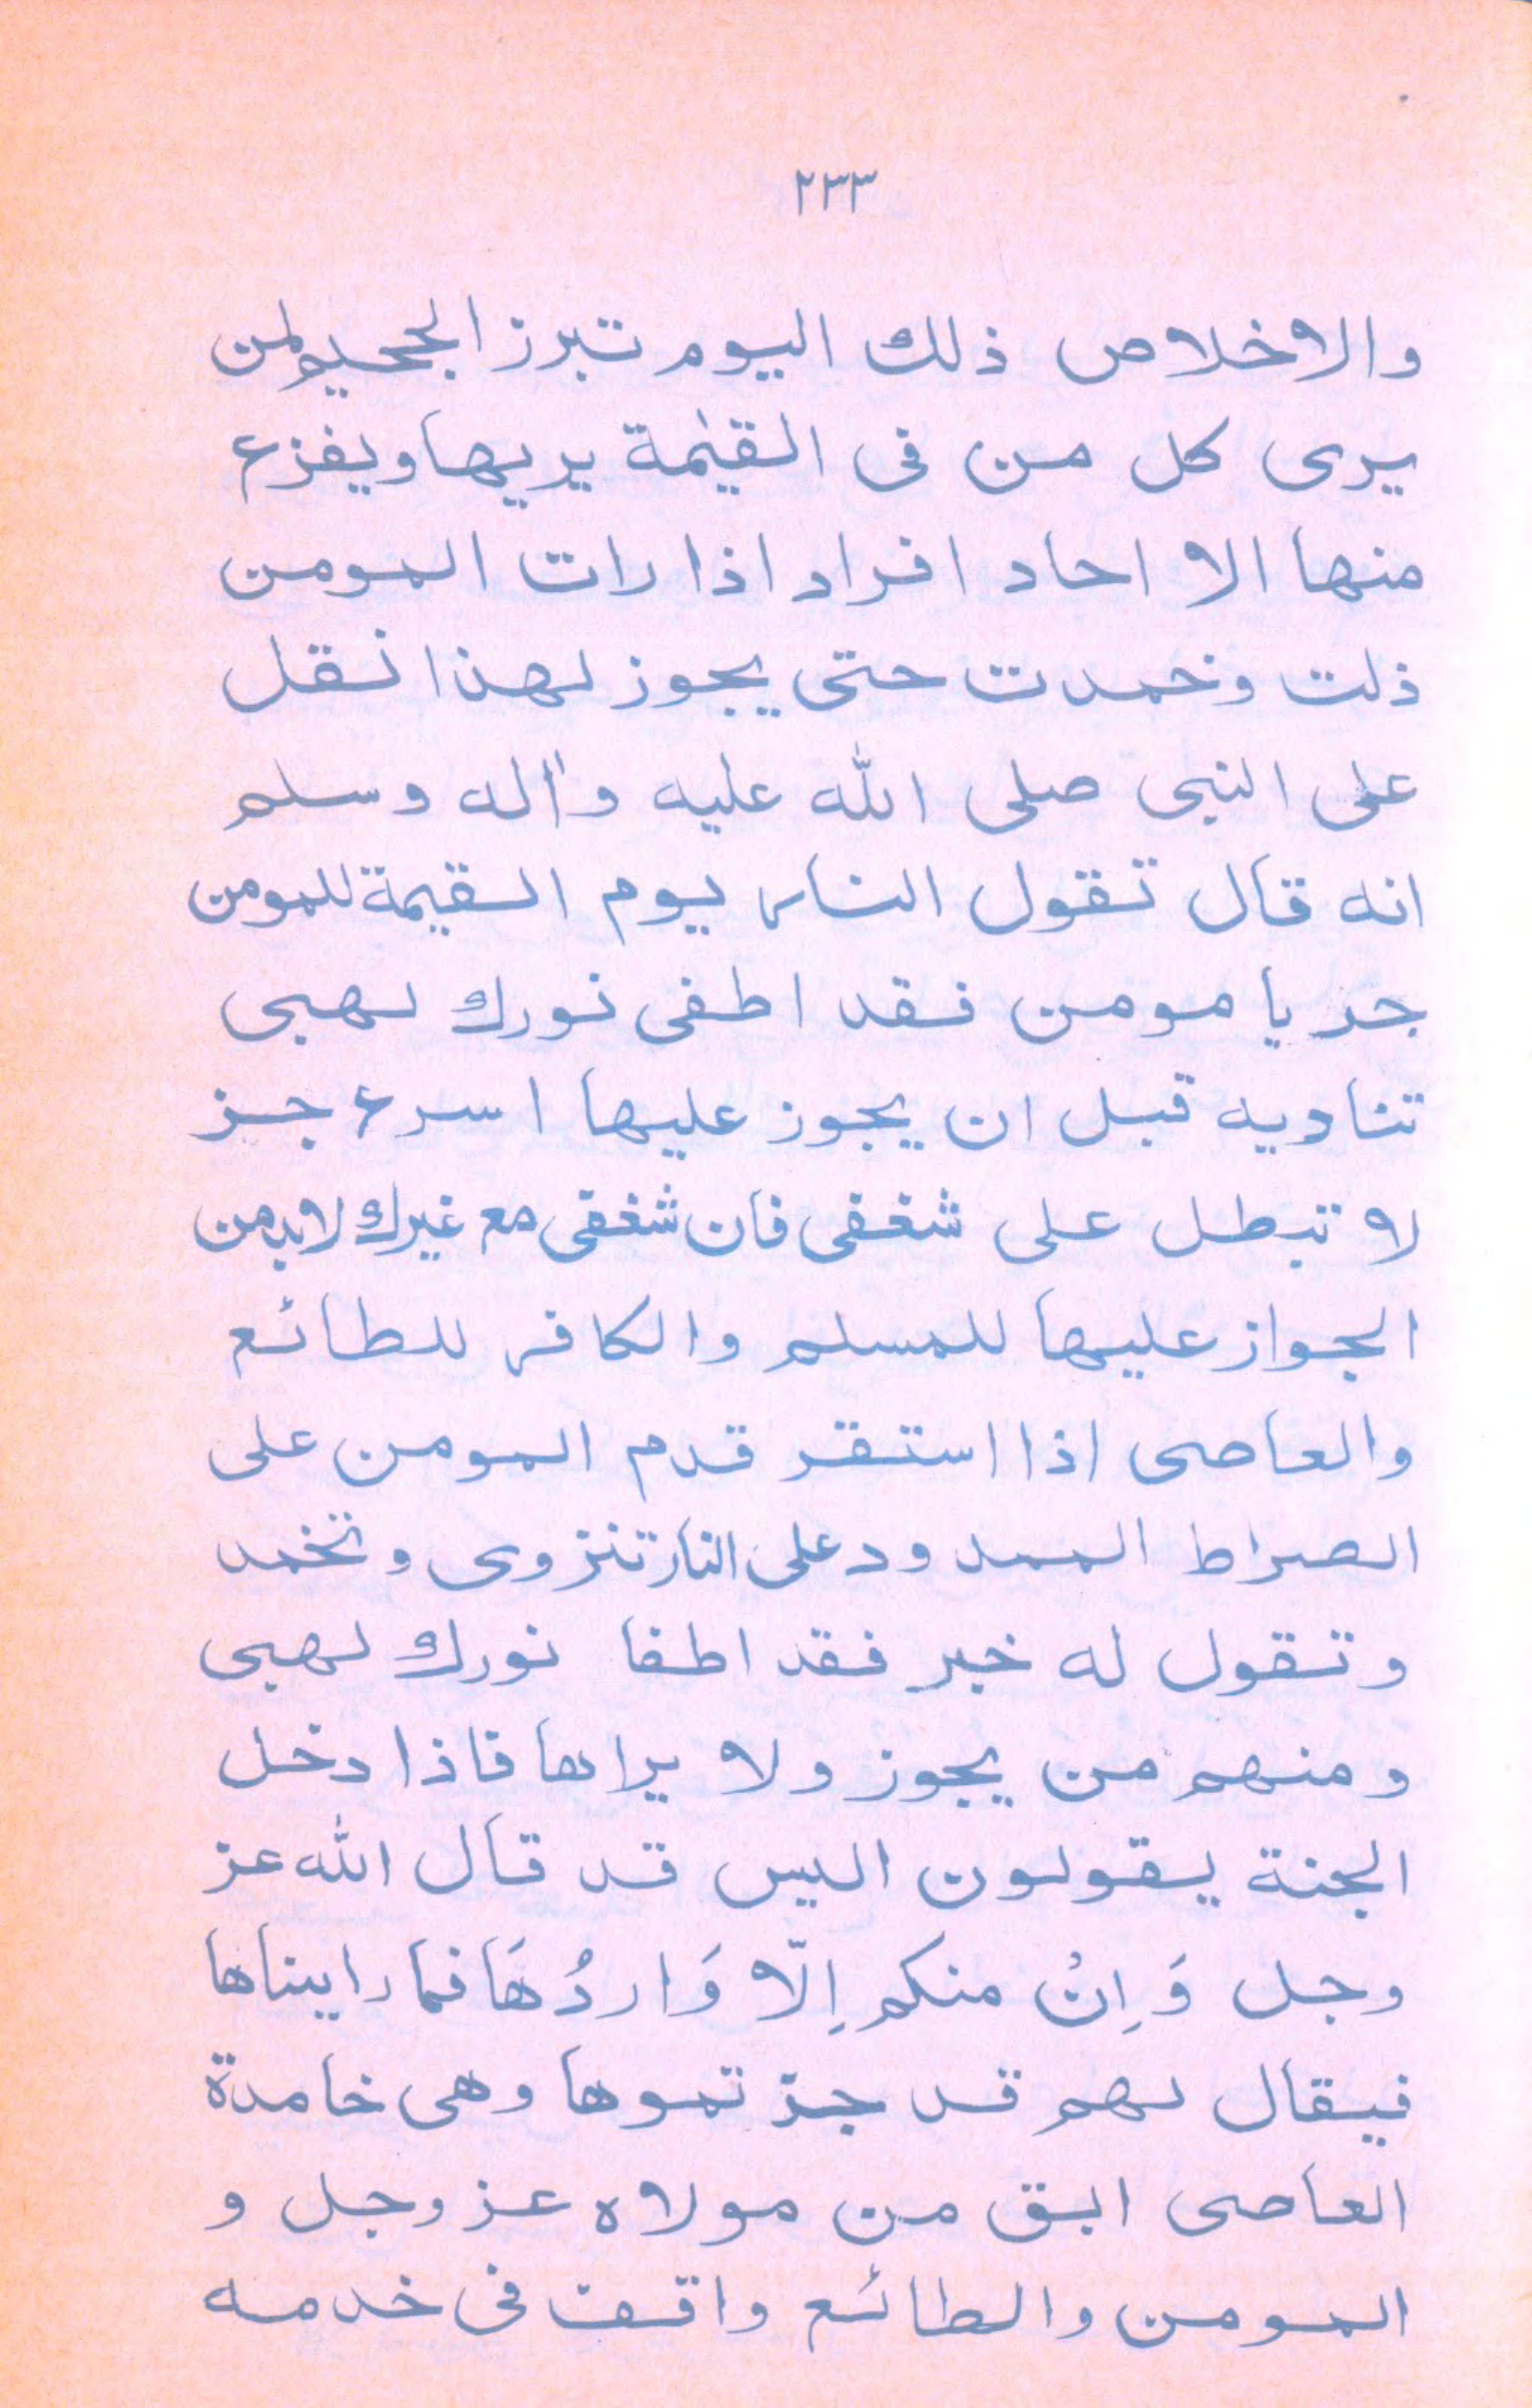 ٢٣٣
والاخلاص ذلك اليوم تبرز الجحيم لمن
يرى كل من فى القيٰمة يريها ويفزع
منها الا احاد افراد اذا رات المومن
ذلت وخمدت حتى يجوز لهذا نقل
على النبى صلى الله عليه واٰله وسلم
انه قال تقول النار يوم القيمة للمومن
جز يا مومن فقد اطفى نورك لهبى
تناديه قبل ان يجوز عليها اسرع جز
لا تبطل على شغفى فان شغفى مع غيرك لابد من
الجواز عليها للمسلم والكافر للطائع
والعاصى اذا استقر قدم المومن على
الصراط الممدود على النار تنزوى وتخمد
وتقول له خبر فقد اطفا نورك لهبى
ومنهم من يجوز ولا يراها فاذا دخل
الجنة يقولون اليس قد قال الله عز
وجل وَاِنْ منكم اِلّا وَاردُهَا فما رايناها
فيقال لهم قد جزتموها وهى خامدة
العاصى ابق من مولاه عز وجل و
المومن والطائع واقف فى خدمه